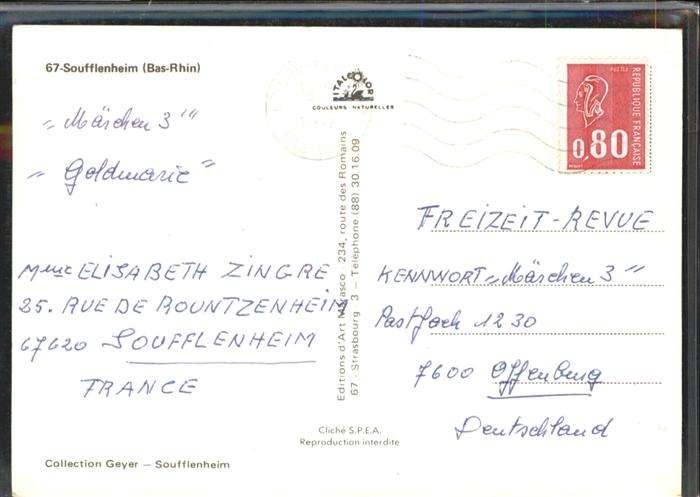 67-Soufflenheim (Bas-Rhin)
„Märchen 3"
„Goldmarie"
Mme ELISABETH ZINGRE
25. RUE DE ROUNTZENHEIM
67620 SOUFFLENHEIM
FRANCE
Collection Geyer – Soufflenheim
ITALCOLOR
COULEURS NATURELLES
Editions d'Art 234, route des Romains
67 - Strasbourg 3 – Telephone (88) 30.16.09
Cliché S.P.E.A.
Reproduction interdite
POSTES
REPUBLIQUE FRANÇAISE
0,80
FREIZEIT-REVUE
KENNWORT „Märchen 3"
Postfach 1230
7600 Offenburg
Deutschland